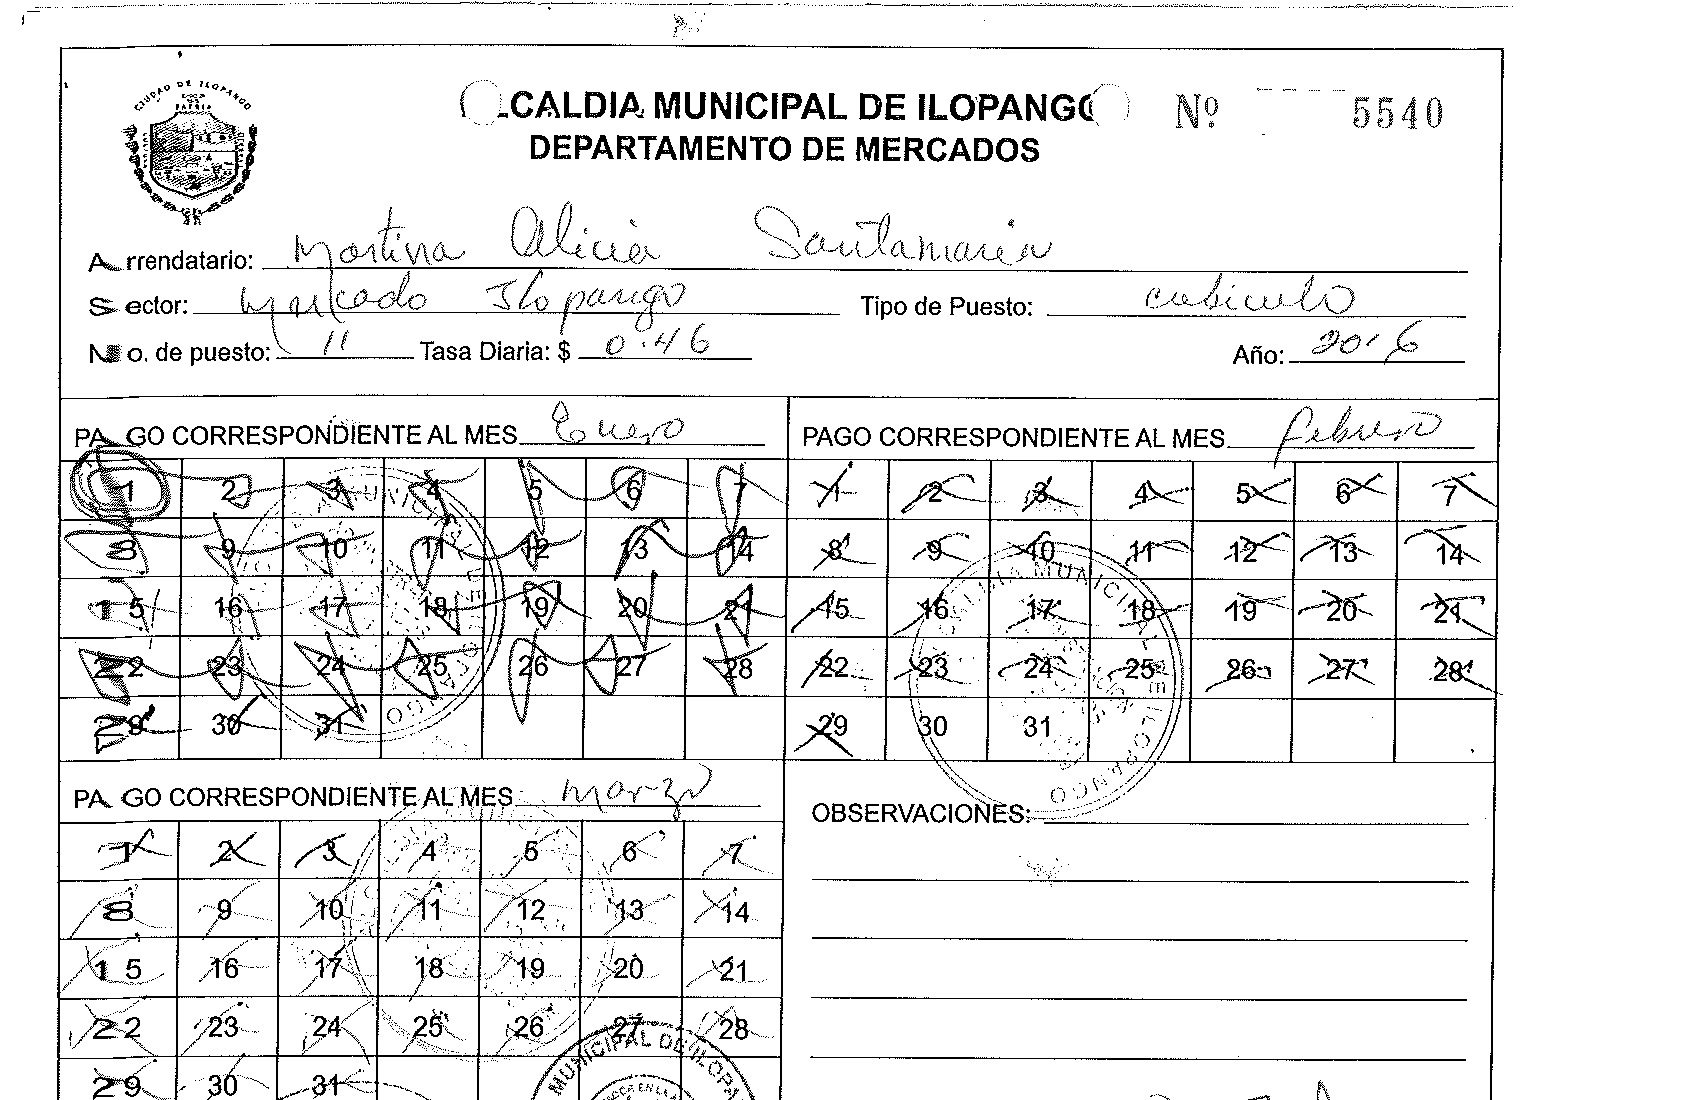 CIUDAD DE ILOPANGO
PATRIA
CALDIA MUNICIPAL DE ILOPANGO Nº 5540
DEPARTAMENTO DE MERCADOS
Arrendatario: Martina Alicia Santamaria
Sector: Mercado Ilopango Tipo de Puesto: cubiculo
No. de puesto: 11 Tasa Diaria: $ 0.46 Año: 2016
PAGO CORRESPONDIENTE AL MES Enero
1 2 3 4 5 6 7
8 9 10 11 12 13 14
15 16 17 18 19 20 21
22 23 24 25 26 27 28
29 30 31
PAGO CORRESPONDIENTE AL MES. febrero
1 2 3 4 5 6 7
8 9 10 11 12 13 14
15 16 17 18 19 20 21
22 23 24 25 26 27 28
29 30 31
ALCALDIA MUNICIPAL DE ILOPANGO
PAGO CORRESPONDIENTE AL MES Marzo
1 2 3 4 5 6 7
8 9 10 11 12 13 14
15 16 17 18 19 20 21
22 23 24 25 26 27 28
29 30 31
MUNICIPAL DE ILOPA
OBSERVACIONES: